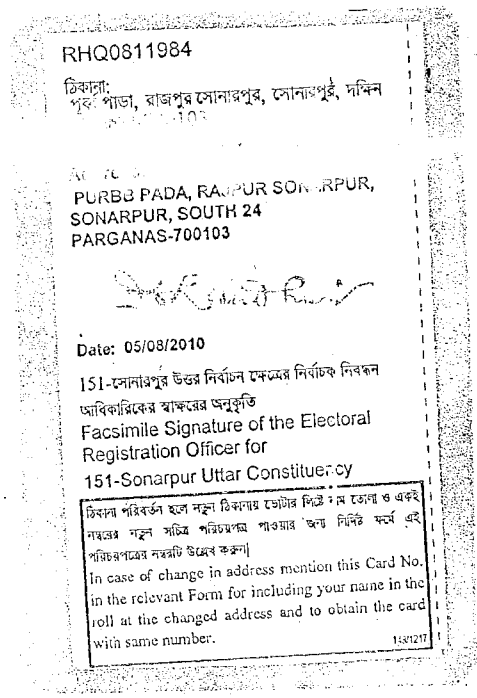 RHQ0811984
ঠিকানা:
পূর্ব পাড়া, রাজপুর সোনারপুর, সোনারপুর, দক্ষিন
PURBB PADA, RAJPUR SONARPUR,
SONARPUR, SOUTH 24
PARGANAS-700103
Date: 05/08/2010
151-সোনারপুর উত্তর নির্বাচন ক্ষেত্রের নির্বাচক নিবন্ধন
আধিকারিকের স্বাক্ষরের অনুকৃতি
Facsimile Signature of the Electoral
Registration Officer for
151-Sonarpur Uttar Constituency
ঠিকানা পরিবর্তন হলে নতুন ঠিকানায় ভোটার লিষ্টে নাম তোলা ও একই
নম্বরের নতুন সচিত্র পরিচয়পত্র পাওয়ার জন্য নির্দিষ্ট ফর্মে এই
পরিচয়পত্রের নম্বরটি উল্লেখ করুন|
In case of change in address mention this Card No.
in the relevant Form for including your name in the
roll at the changed address and to obtain the card
with same number.